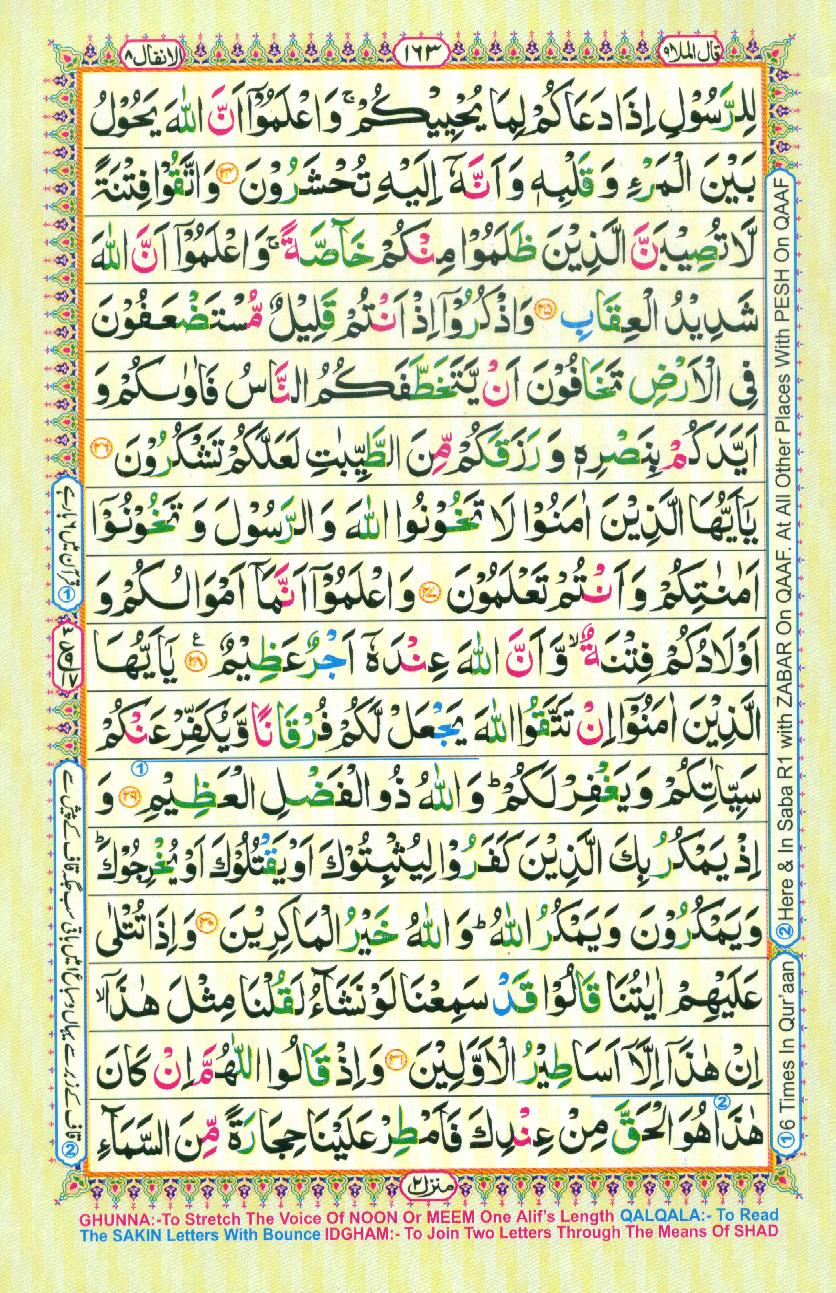 قال الملا۹
۱۶۳
الانفال۸
لِلرَّسُوْلِ اِذَا دَعَاكُمْ لِمَا يُحْيِيْكُمْ ۚ وَاعْلَمُوْٓا اَنَّ اللّٰهَ يَحُوْلُ
بَيْنَ الْمَرْءِ وَ قَلْبِهٖ وَ اَنَّهٗٓ اِلَيْهِ تُحْشَرُوْنَ ۲۴ وَاتَّقُوْا فِتْنَةً
لَّا تُصِيْبَنَّ الَّذِيْنَ ظَلَمُوْا مِنْكُمْ خَآصَّةً ۚ وَاعْلَمُوْٓا اَنَّ اللّٰهَ
شَدِيْدُ الْعِقَابِ ۲۵ وَاذْكُرُوْٓا اِذْ اَنْتُمْ قَلِيْلٌ مُّسْتَضْعَفُوْنَ
فِى الْاَرْضِ تَخَافُوْنَ اَنْ يَّتَخَطَّفَكُمُ النَّاسُ فَاٰوٰىكُمْ وَ
اَيَّدَكُمْ بِنَصْرِهٖ وَ رَزَقَكُمْ مِّنَ الطَّيِّبٰتِ لَعَلَّكُمْ تَشْكُرُوْنَ ۲۶
يٰٓاَيُّهَا الَّذِيْنَ اٰمَنُوْا لَا تَخُوْنُوا اللّٰهَ وَ الرَّسُوْلَ وَ تَخُوْنُوْٓا
اَمٰنٰتِكُمْ وَ اَنْتُمْ تَعْلَمُوْنَ ۲۷ وَاعْلَمُوْٓا اَنَّمَآ اَمْوَالُكُمْ وَ
اَوْلَادُكُمْ فِتْنَةٌ ۙ وَّ اَنَّ اللّٰهَ عِنْدَهٗٓ اَجْرٌ عَظِيْمٌ ۲۸ ع يٰٓاَيُّهَا
الَّذِيْنَ اٰمَنُوْٓا اِنْ تَتَّقُوا اللّٰهَ يَجْعَلْ لَّكُمْ فُرْقَانًا وَّ يُكَفِّرْ عَنْكُمْ
①
سَيِّاٰتِكُمْ وَ يَغْفِرْ لَكُمْ ؕ وَ اللّٰهُ ذُو الْفَضْلِ الْعَظِيْمِ ۲۹ وَ
اِذْ يَمْكُرُ بِكَ الَّذِيْنَ كَفَرُوْا لِيُثْبِتُوْكَ اَوْ يَقْتُلُوْكَ اَوْ يُخْرِجُوْكَ ؕ
وَيَمْكُرُوْنَ وَيَمْكُرُ اللّٰهُ ؕ وَ اللّٰهُ خَيْرُ الْمَاكِرِيْنَ ۳۰ وَاِذَا تُتْلٰى
عَلَيْهِمْ اٰيٰتُنَا قَالُوْا قَدْ سَمِعْنَا لَوْ نَشَآءُ لَقُلْنَا مِثْلَ هٰذَآ ۙ
اِنْ هٰذَآ اِلَّآ اَسَاطِيْرُ الْاَوَّلِيْنَ ۳۱ وَاِذْ قَالُوا اللّٰهُمَّ اِنْ كَانَ
②
هٰذَا هُوَ الْحَقَّ مِنْ عِنْدِكَ فَاَمْطِرْ عَلَيْنَا حِجَارَةً مِّنَ السَّمَآءِ
منزل۲
② Here & In Saba R1 with ZABAR On QAAF. At All Other Places With PESH On QAAF
① 6 Times In Qur'aan
① قرآن میں ۶ بار ہے
GHUNNA:-To Stretch The Voice Of NOON Or MEEM One Alif's Length QALQALA:- To Read
The SAKIN Letters With Bounce IDGHAM:- To Join Two Letters Through The Means Of SHAD